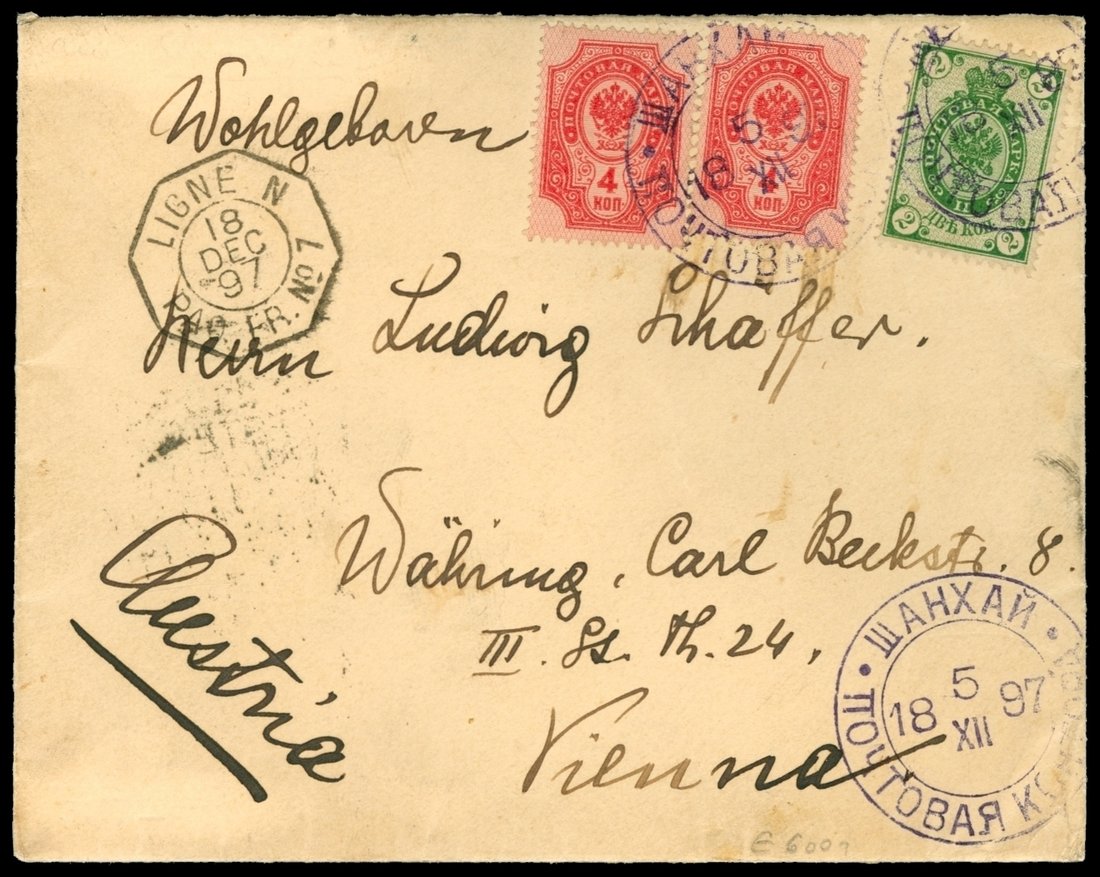 Wohlgeboren
Herrn Ludwig Schaffer.
Währing, Carl Beckstr. 8.
III. St. Th. 24.
Vienna
Austria
LIGNE N
18
DEC
97
PAQ. FR. No 7
ПОЧТОВАЯ МАРКА
4
КОП.
ПОЧТОВАЯ МАРКА
4
КОП.
ПОЧТОВАЯ МАРКА
2 2
2 ДВѢ КОП. 2
ШАНХАЙ
5
18 XII
ПОЧТОВАЯ
5
XII
ШАНХАЙ
5
18 97
XII
ПОЧТОВАЯ
E 600